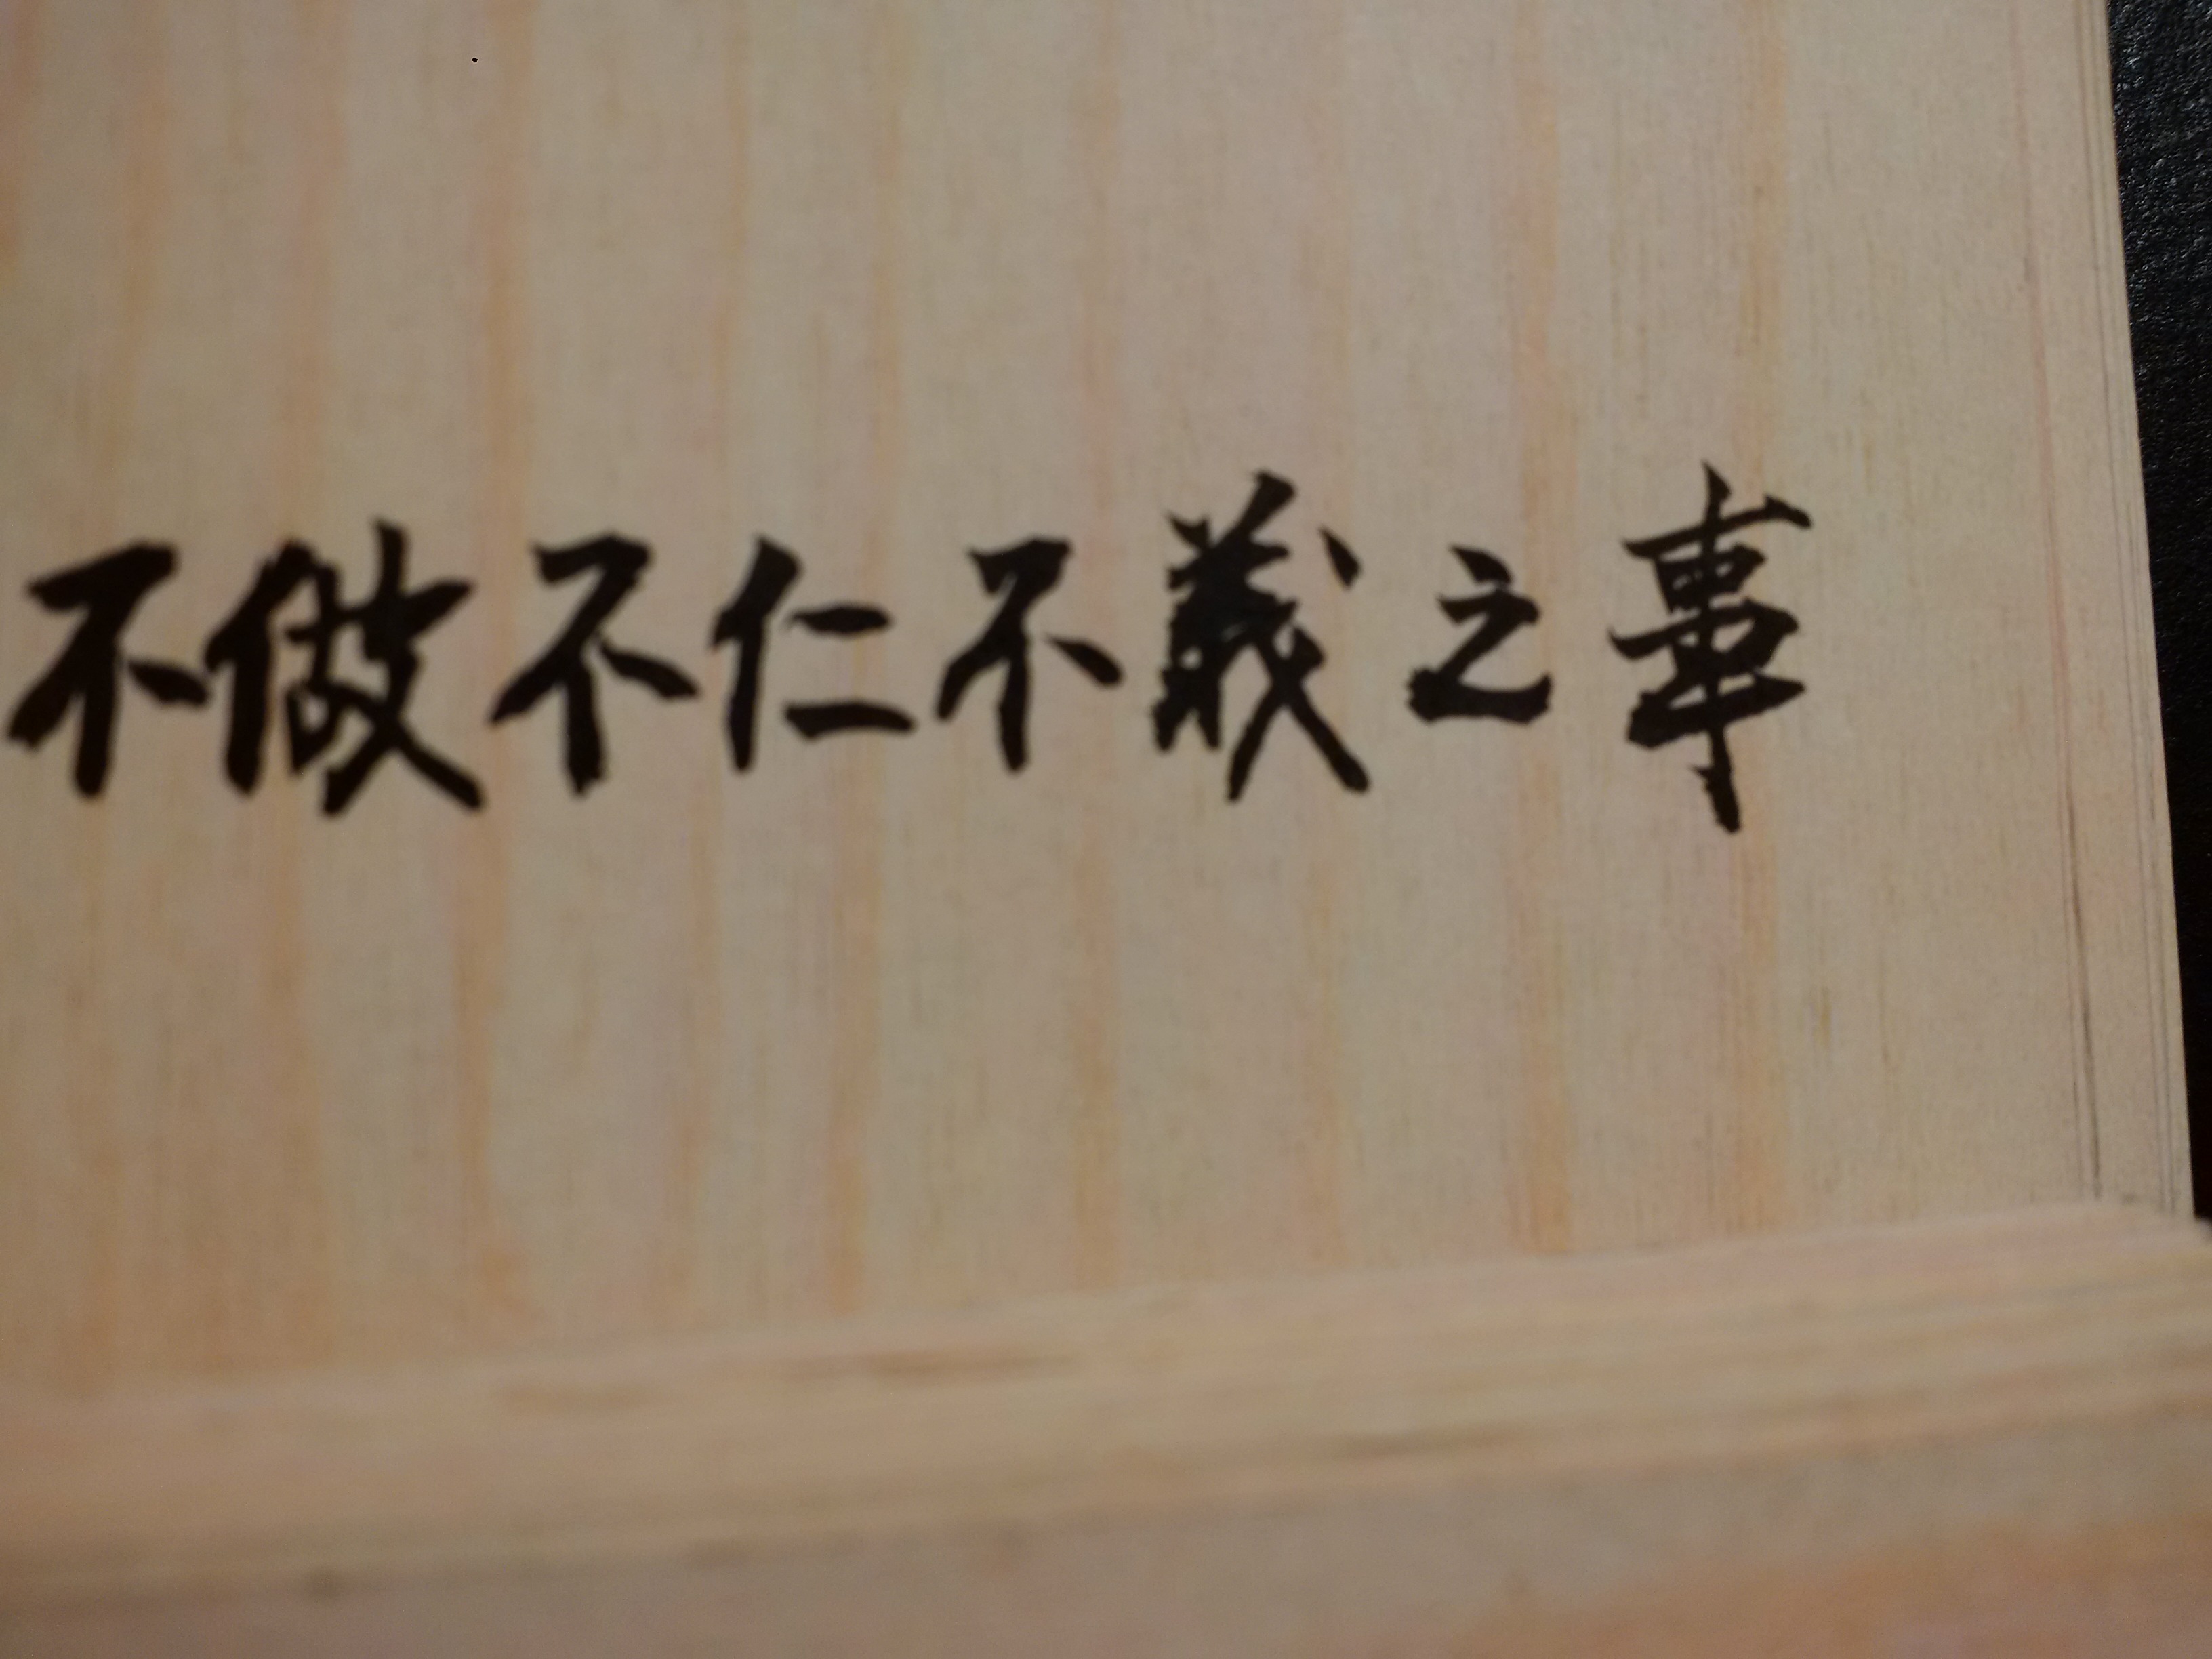 不做不仁不義之事